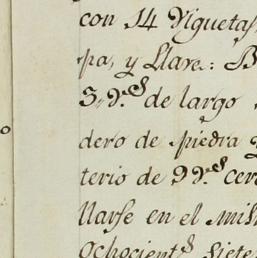 con 14 Viguetas
pa, y Llave: B
3,,v.s de largo
dero de piedra
terio de 99.s cer
llarse en el mis
Ochocient.s siete